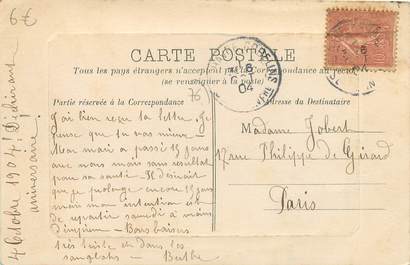 6€
CARTE POSTALE
Tous les pays étrangers n'acceptent pas la Correspondance au recto
(se renseigner à la poste)
Partie réservée à la Correspondance
Adresse du Destinataire
76
J'ai bien reçu ta lettre. Je
pense que tu vas mieux
Mon mari a passé 15 jours
avec nous mais sans résultat
pour sa santé. Il désirait
que je prolonge encore 15 jours
mais mon intention est
de repartir samedi à moins
d'imprévu - Bons baisers
très triste et dans les
sanglots - Berthe
4 Octobre 1904
anniversaire
Madame Jobert
17 rue Philippe de Girard
Paris
04